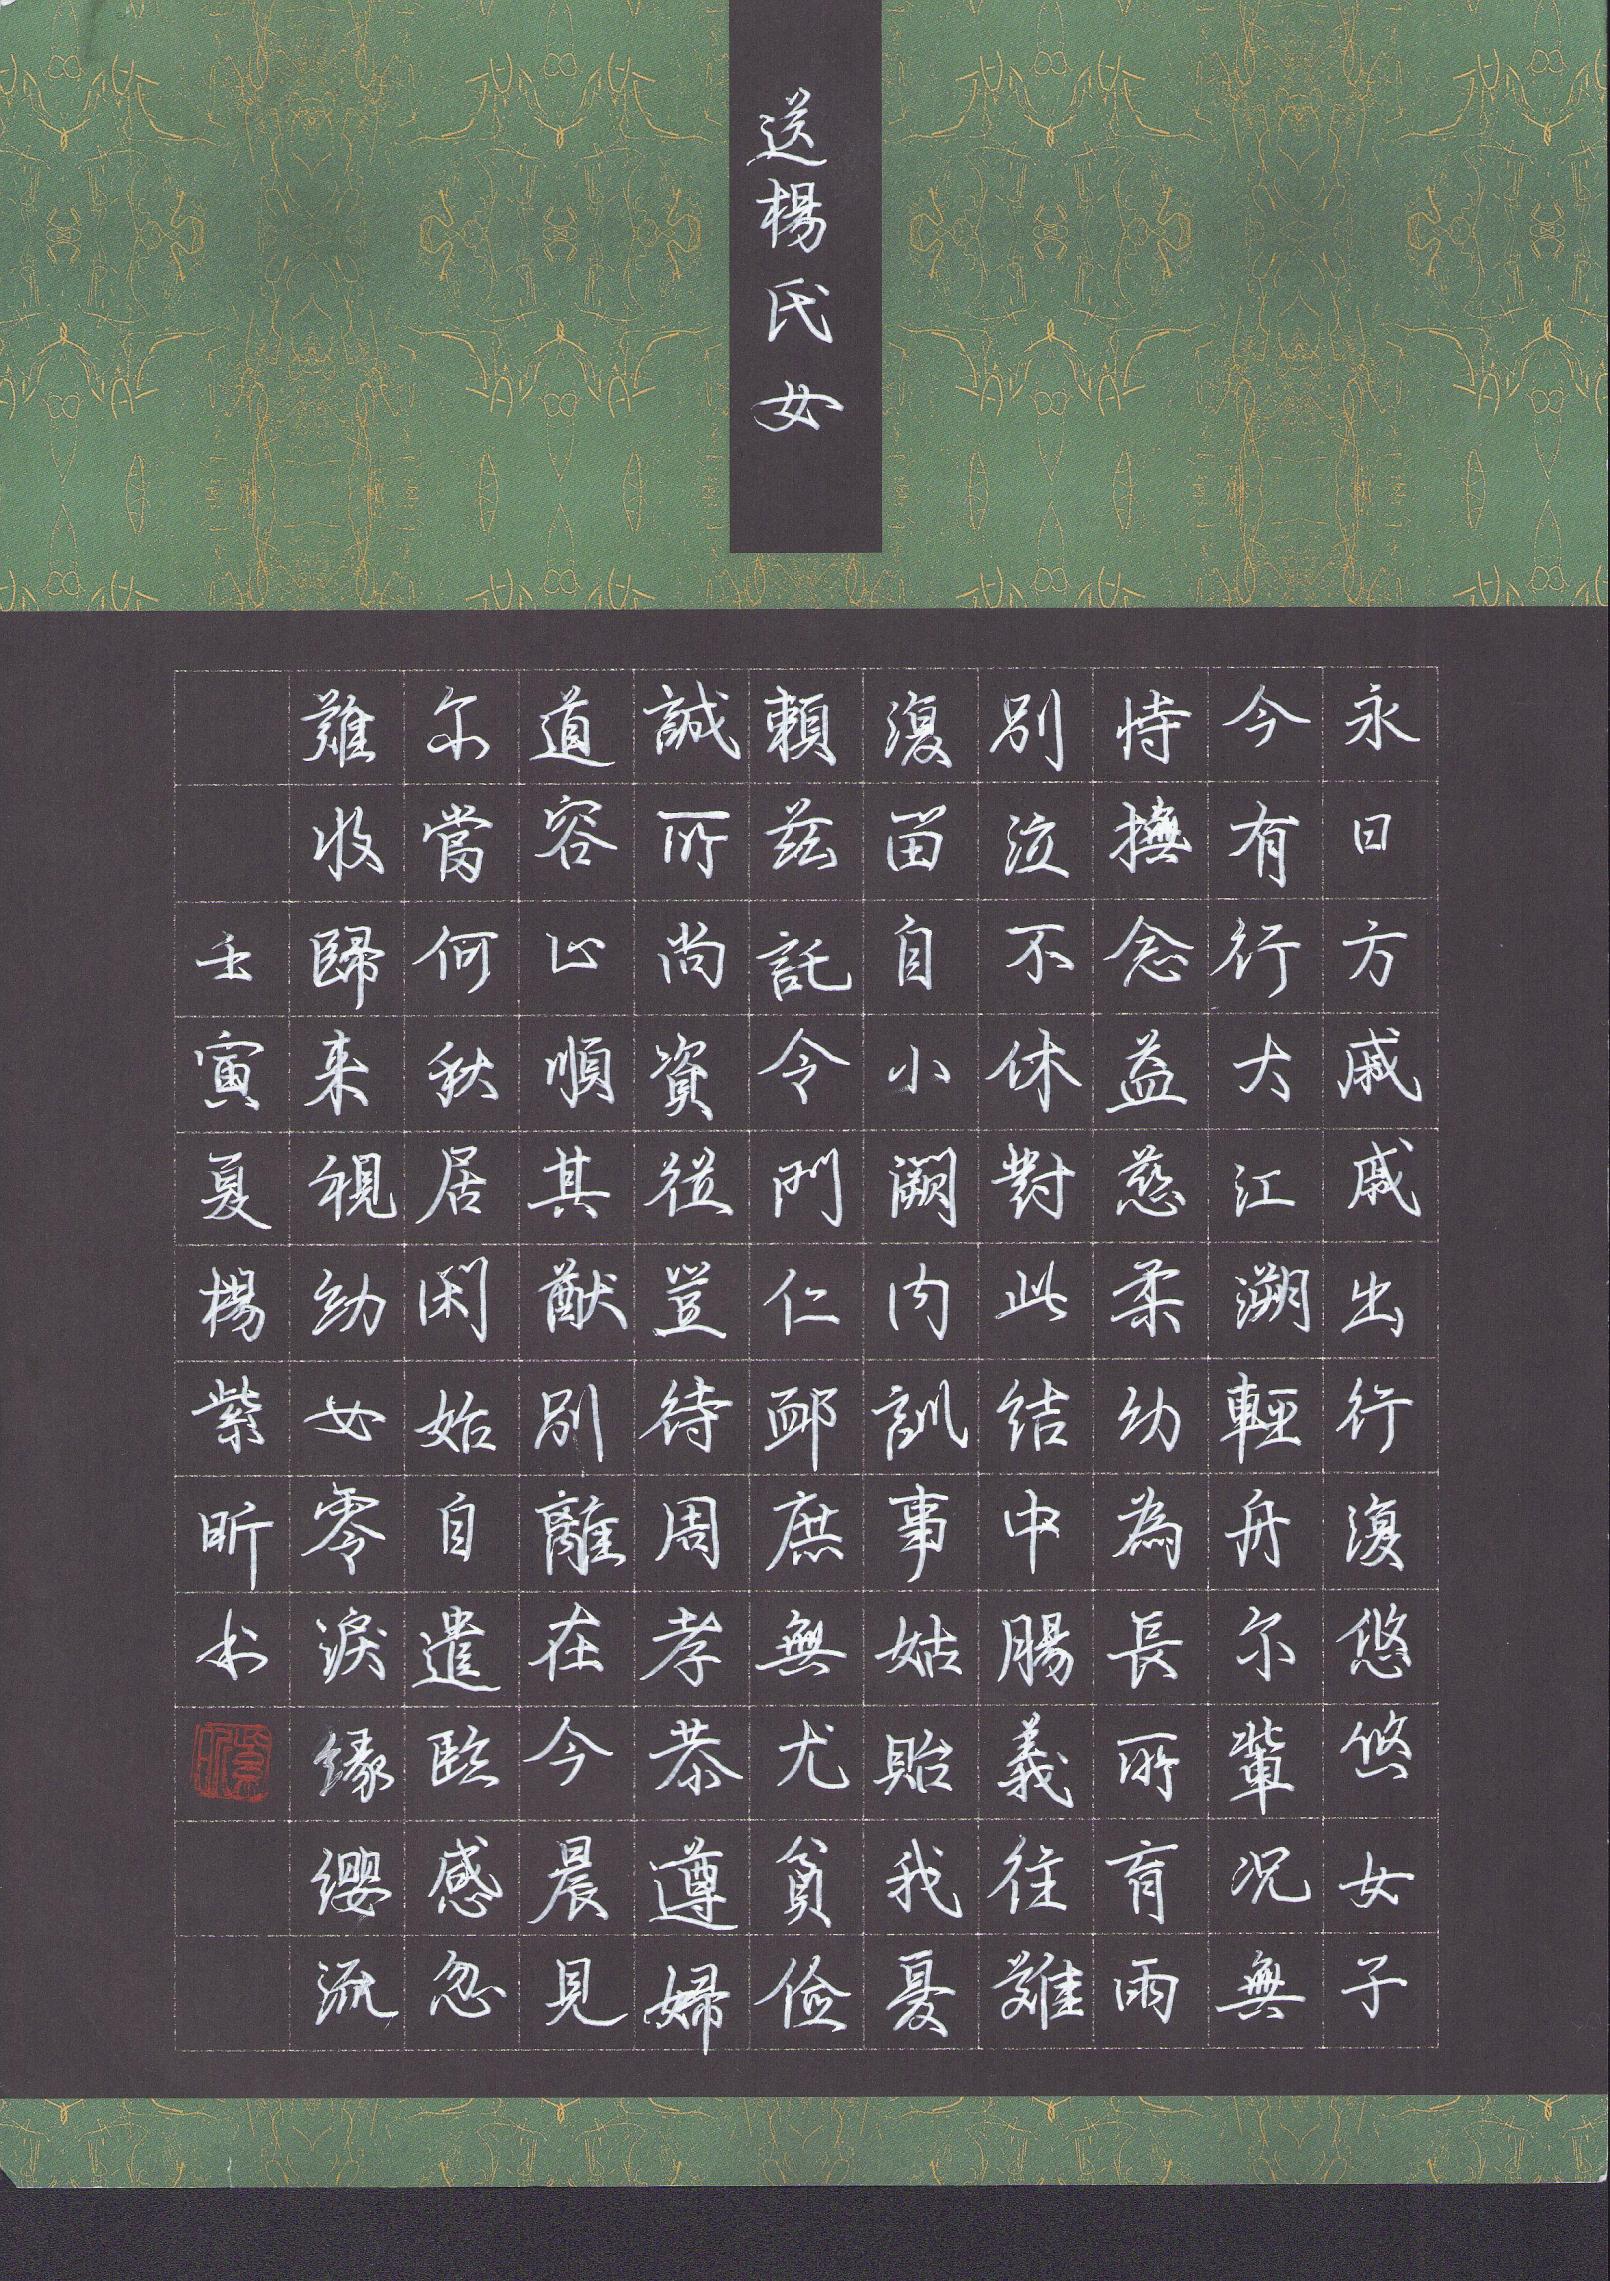 送楊氏女
永日方戚戚出行復悠悠女子
今有行大江溯輕舟尓輩況無
恃撫念益慈柔幼為長所育兩
別泣不休對此結中腸義往難
復留自小闕內訓事姑貽我憂
賴茲託令門仁卹庶無尤貧儉
誠所尚資從豈待周孝恭遵婦
道容止順其猷別離在今晨見
尔當何秋居閑始自遣臨感忽
難收歸来視幼女零淚緣纓流
壬寅夏楊紫昕书
紫昕